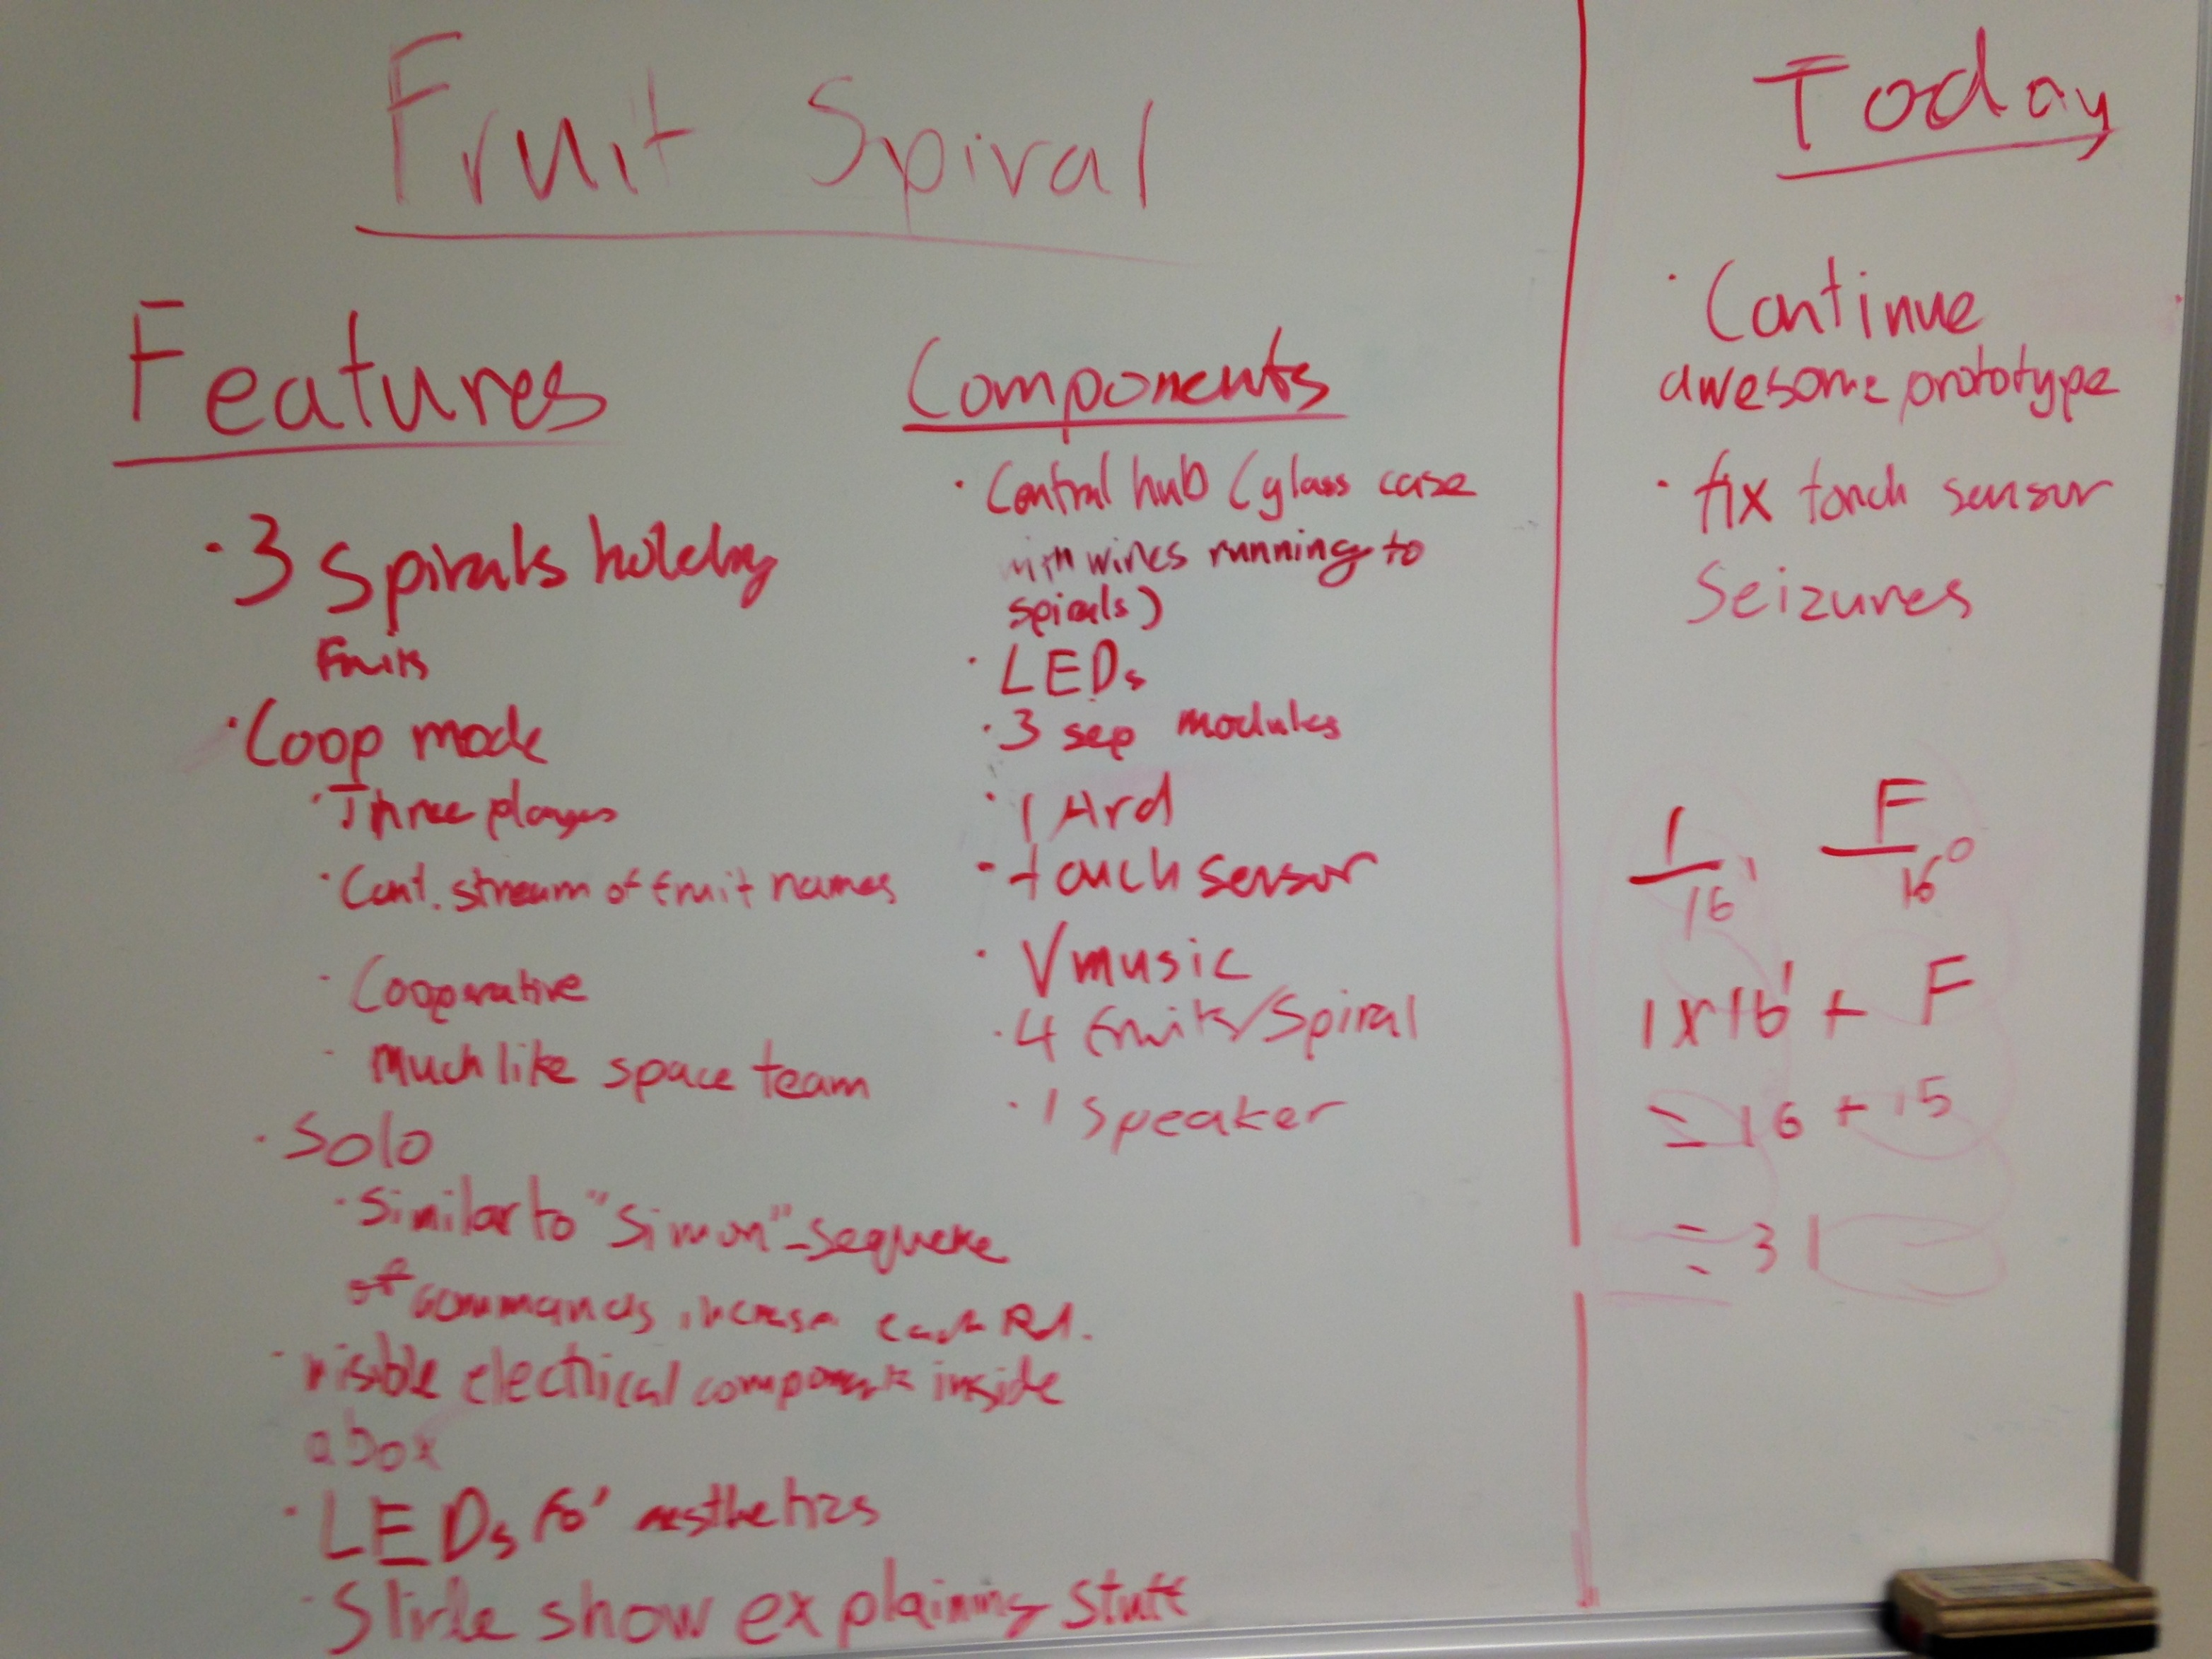 Fruit Spiral
Features
· 3 Spirals holding
Fruits
· Coop mode
· Three players
· Cont. stream of fruit names
· Cooperative
· Much like space team
· Solo
· Similar to "Simon" - sequence
of commands increase each Rd.
· visible electrical components inside
a box
· LEDs fo' aesthetics
· Slide show explaining stuff
Components
· Central hub (glass case
with wires running to
spirals)
· LEDs
· 3 sep modules
· 1 Ard
· touch sensor
· Vmusic
· 4 fruits/Spiral
· 1 Speaker
Today
· Continue
awesome prototype
· fix touch sensor
Seizures
1 F
16¹ 16⁰
1x16¹ + F
= 16 + 15
= 31